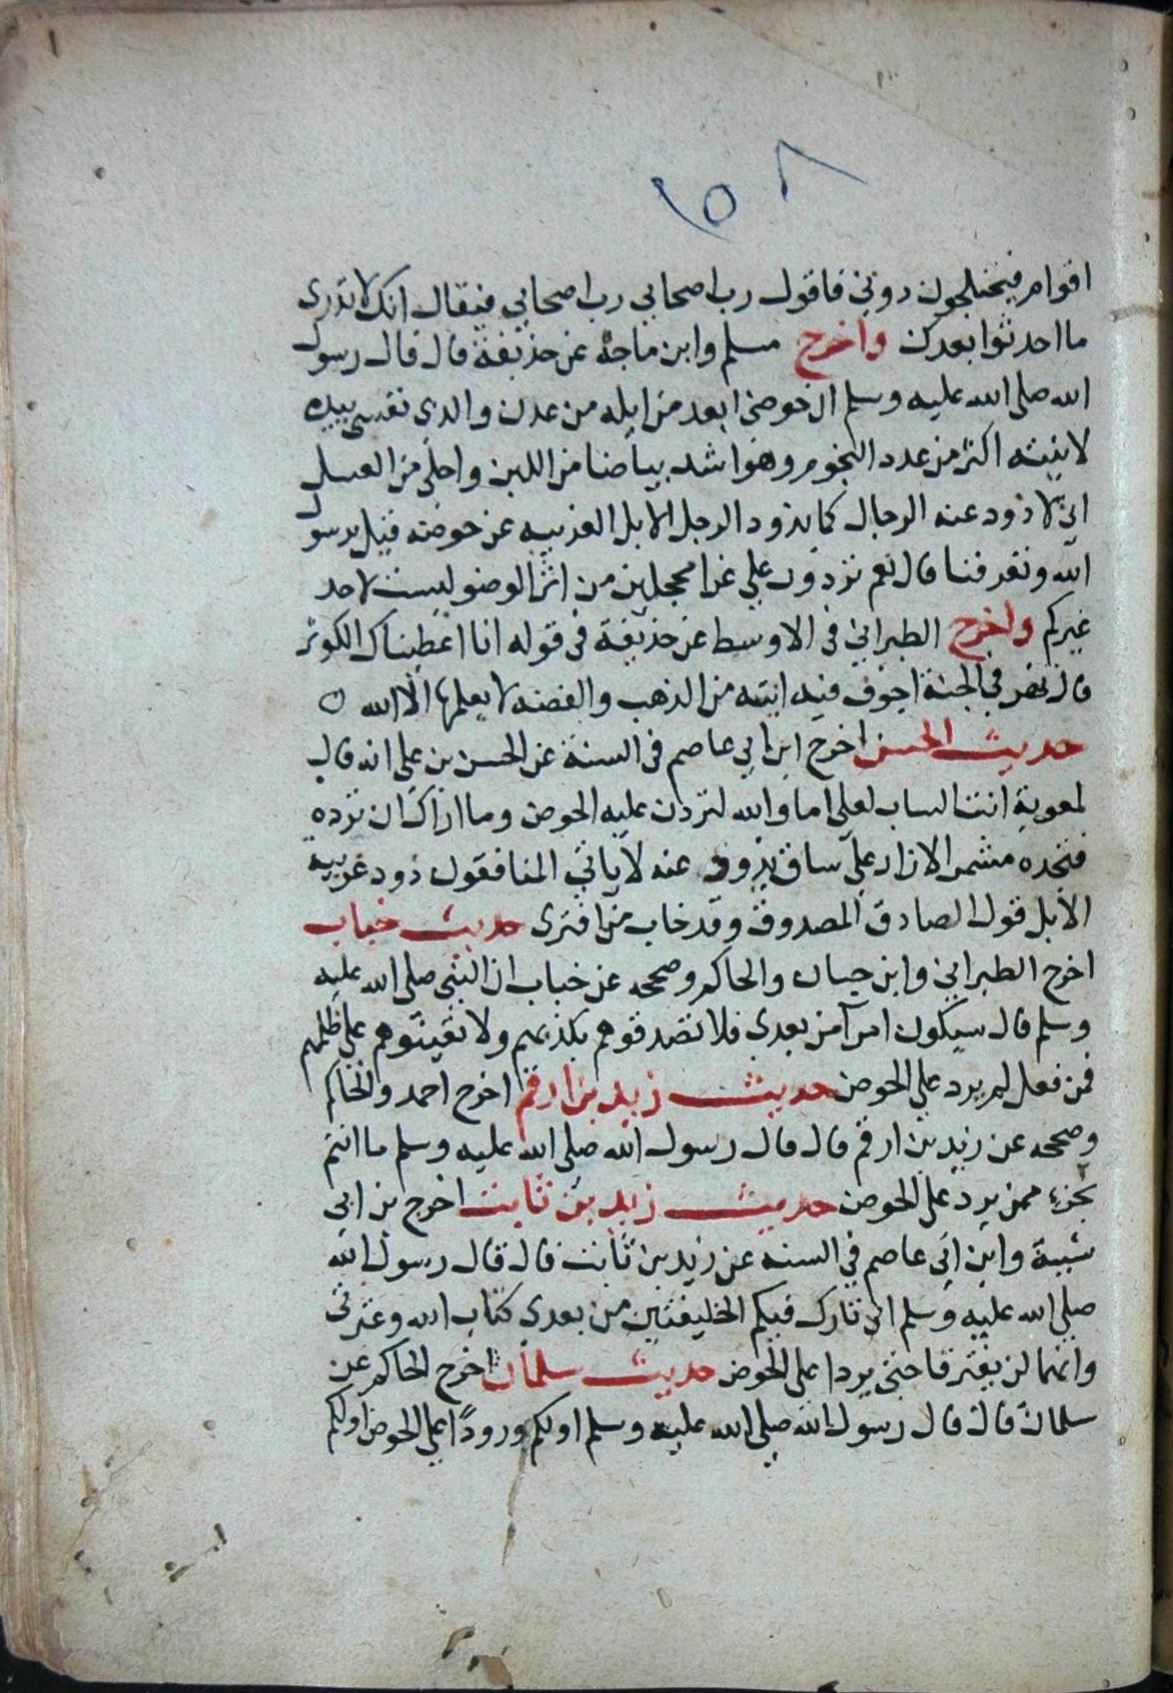 ١
٨ ٥٦
اقوام فيختلجون دوني فاقول رب اصحابي رب اصحابي فيقال انك لا تدرى
ما احدثوا بعدك واخرج مسلم وابن ماجة عن حذيفة قال قال رسول
الله صلى الله عليه وسلم ان حوضى ابعد من ايله من عدن والذى نفسى بيده
لانيته اكثر من عدد النجوم وهو اشد بياضا من اللبن واحلى من العسل
انى لاذود عنه الرجال كما يذود الرجل الابل الغريبه عن حوضه قيل يرسول
الله وتعرفنا قال نعم تردون على غرا محجلين من اثر الوضو ليست لاحد
غيركم واخرج الطبرانى فى الاوسط عن حذيفة فى قوله انا اعطيناك الكوثر
قال نهر فى الجنة اجوف فيه انيته من الذهب والفضه لا يعلمها الا الله ٥
حديث الحسن اخرج ابن ابي عاصم فى السنة عن الحسن بن على انه قال
لمعوية انت الساب لعلى اما والله لتردن عليه الحوض وما اراك ان ترده
فتجده مشمر الازار على ساق يذود عنه لا ياتى المنافقون ذود غريبة
الابل قول الصادق المصدوق وقد خاب من افترى حديث خباب
اخرج الطبرانى وابن حبان والحاكم وصححه عن خباب ان النبى صلى الله عليه
وسلم قال سيكون امرآ من بعدى فلا تصدقوهم بكذبهم ولا تعينوهم على ظلمهم
فمن فعل لم يرد على الحوض حديث زيد بن ارقم اخرج احمد والحاكم
وصححه عن زيد بن ارقم قال قال رسول الله صلى الله عليه وسلم ما انتم
بجزء ممن يرد على الحوض حديث زيد بن ثابت اخرج بن ابى
شيبة وابن ابى عاصم فى السنه عن زيد بن ثابت قال قال رسول الله
صلى الله عليه وسلم انى تارك فيكم الخليفتين من بعدى كتاب الله وعترتى
وانهما لن يفترقا حتى يردا على الحوض حديث سلمان اخرج الحاكم عن
سلمان قال قال رسول الله صلى الله عليه وسلم اولكم ورودًا على الحوض اولكم